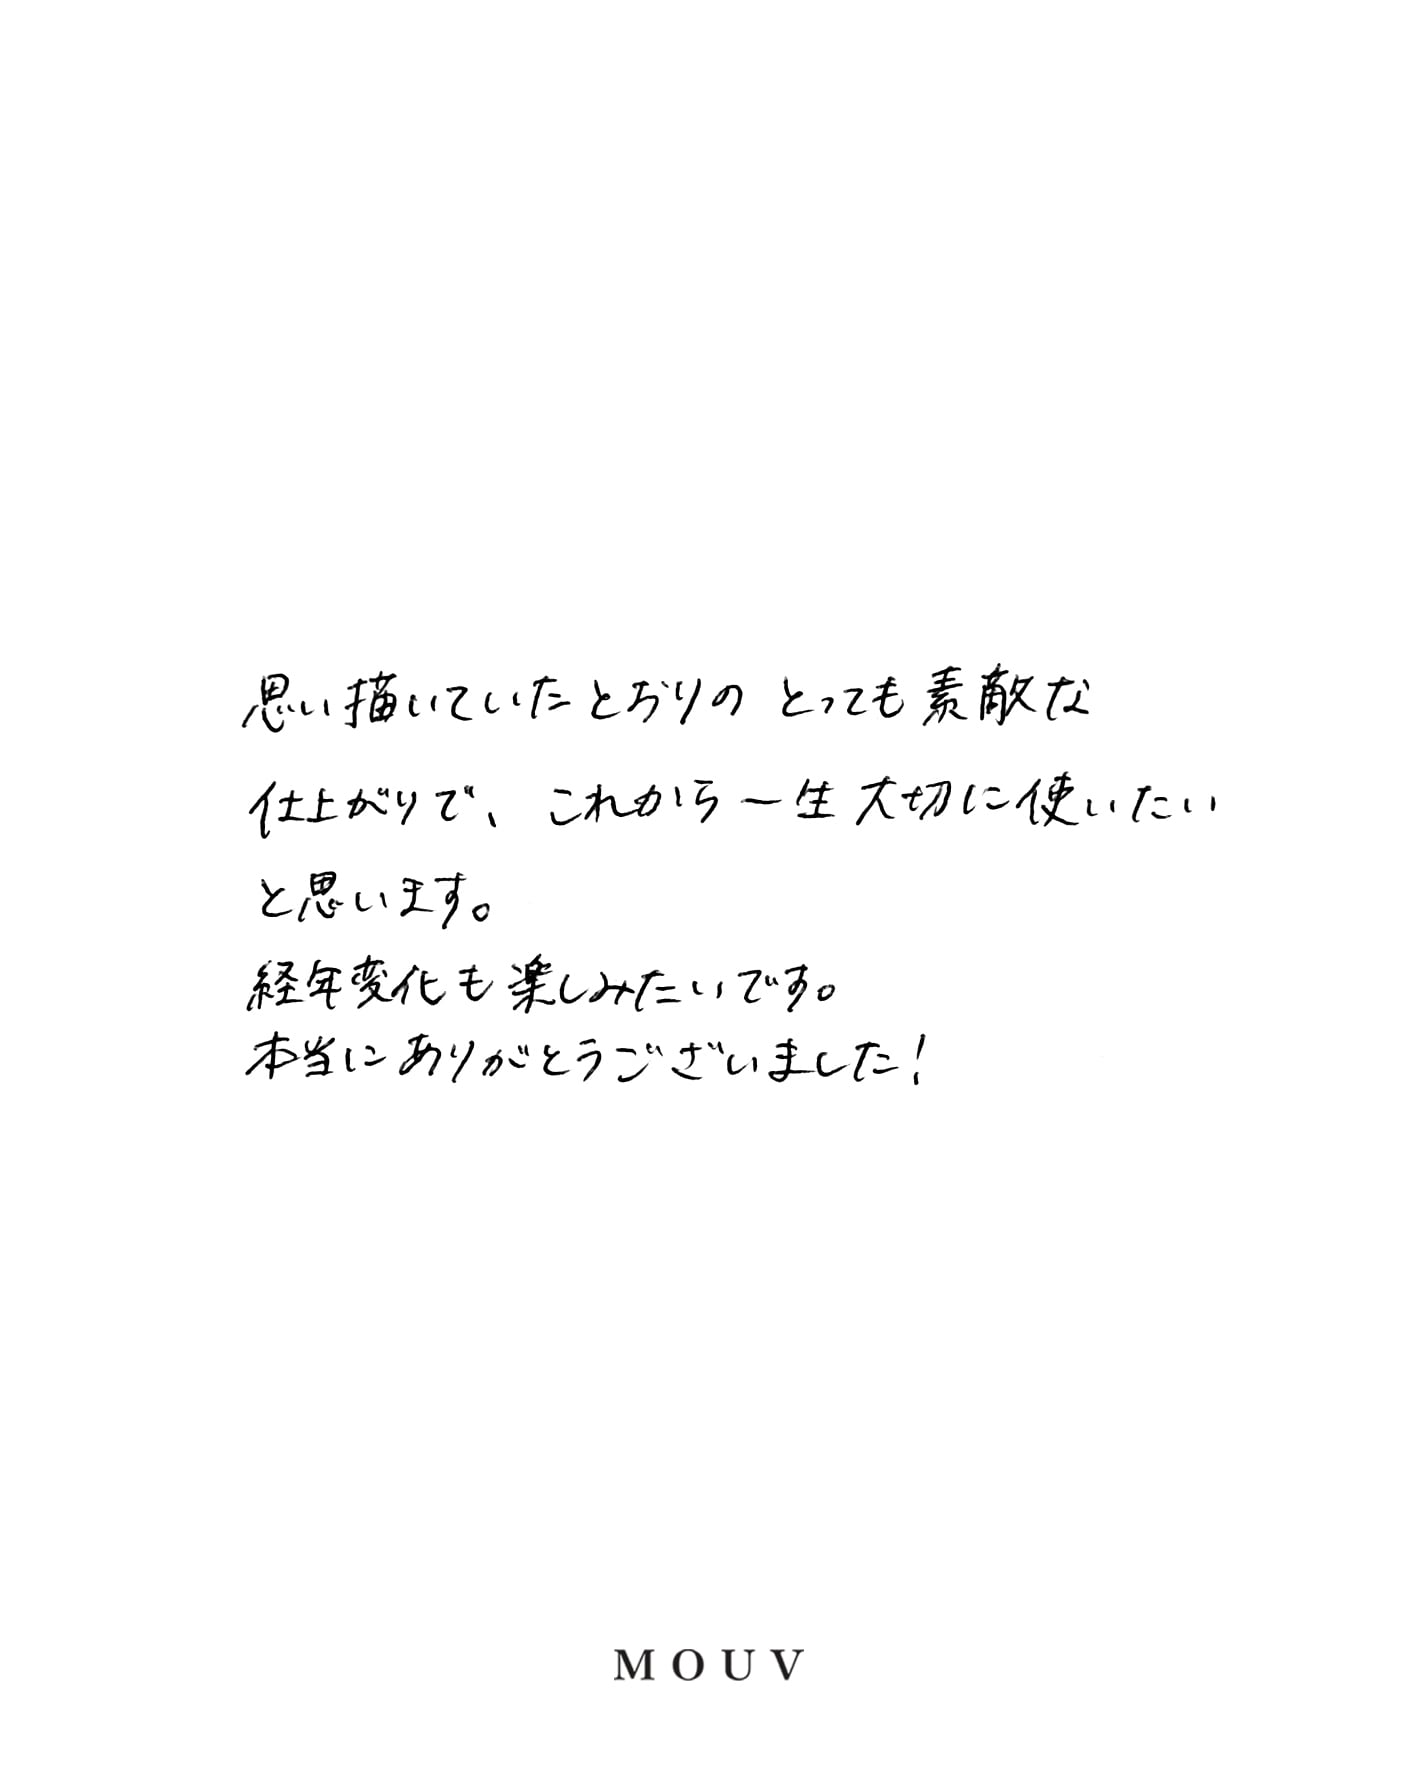 思い描いていたとおりの とっても素敵な
仕上がりで、これから一生大切に使いたい
と思います。
経年変化も楽しみたいです。
本当にありがとうございました!
MOUV